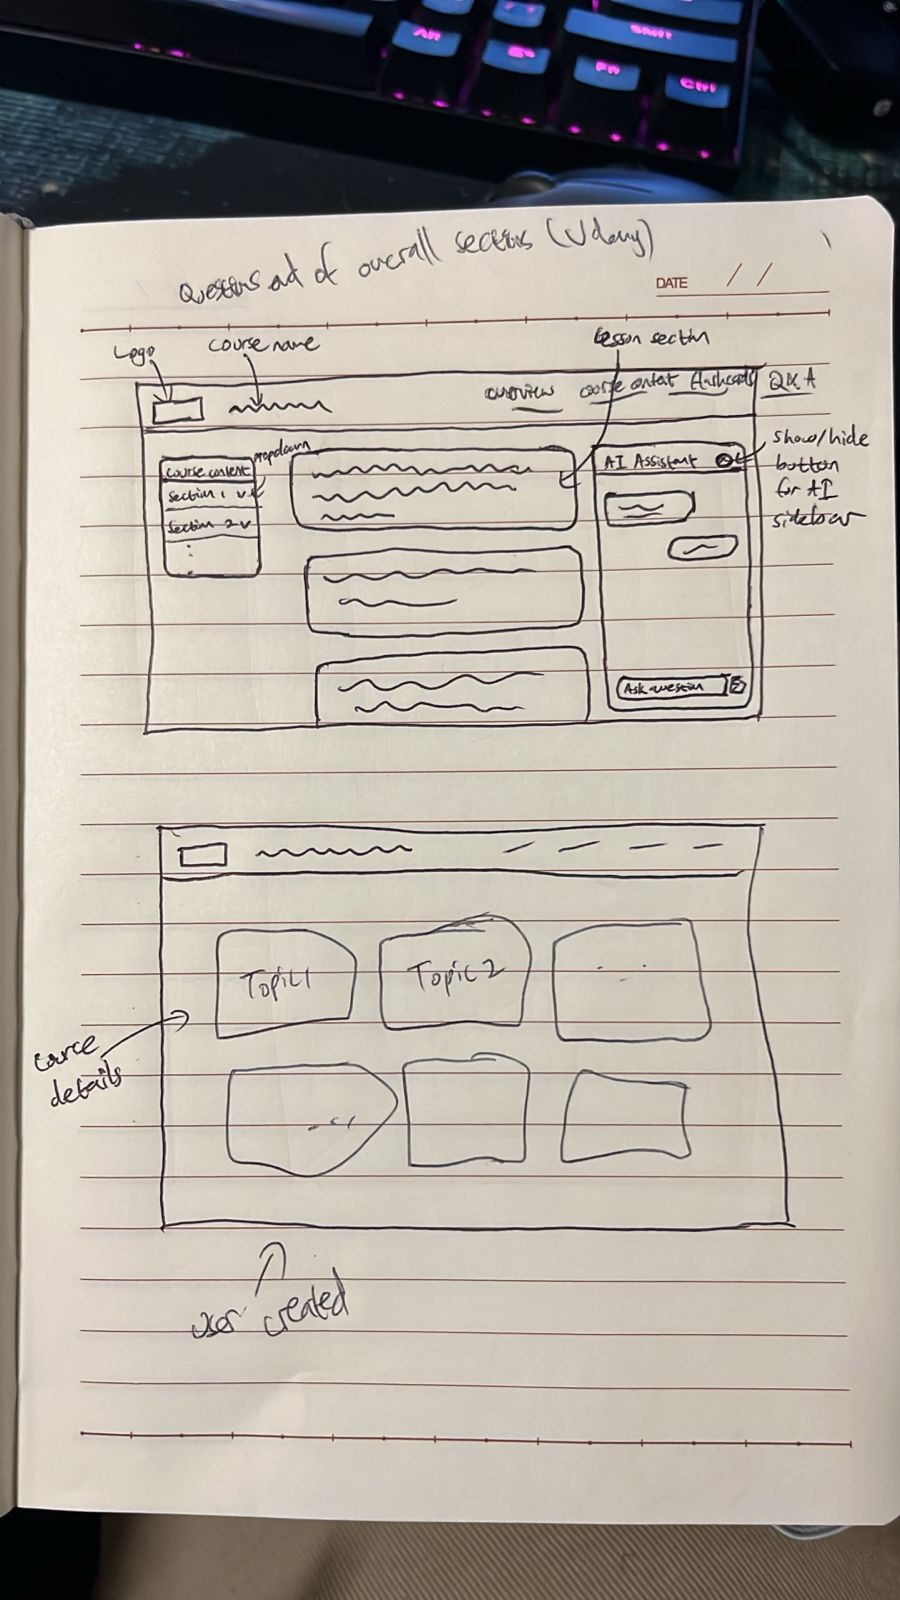 Questions out of overall sections (Udemy)
DATE / /
Logo
course name
Lesson section
overview course content flashcards Q&A
dropdown
course content
section 1 v
section 2 v
AI Assistant
show/hide
button
for AI
sidebar
Ask question
Topic 1
Topic 2
course
details
user created
Alt
Fn
Shift
Ctrl